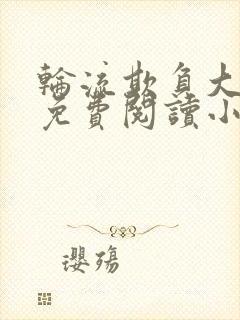 輪流欺負大
免費閱讀小
瓔殤